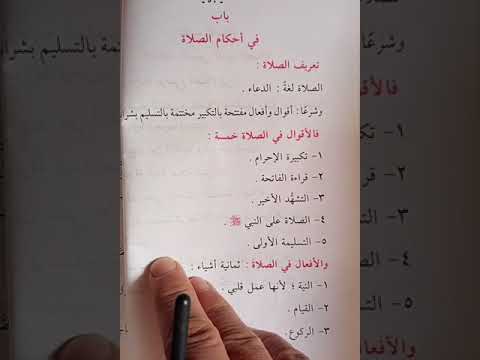 باب
في أحكام الصلاة
تعريف الصلاة :
الصلاة لغةً : الدعاء .
وشرعًا : أقوال وأفعال مفتتحة بالتكبير مختتمة بالتسليم بشرائط
فالأقوال في الصلاة خمسة :
١- تكبيرة الإحرام .
٢- قراءة الفاتحة .
٣- التشهُّد الأخير .
٤- الصلاة على النبي ﷺ .
٥- التسليمة الأولى .
والأفعال في الصلاة : ثمانية أشياء :
١- النية ؛ لأنها عمل قلبي .
٢- القيام .
٣- الركوع .